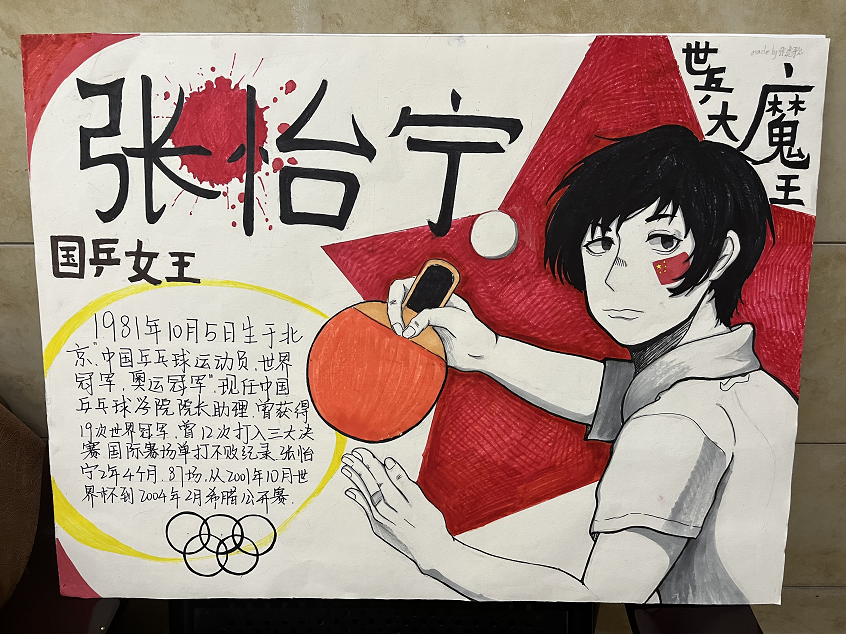 made by
世乒大
魔王
张怡宁
国乒女王
1981年10月5日生于北
京"中国乒乓球运动员,世界
冠军,奥运冠军".现任中国
乒乓球学院院长助理.曾获得
19次世界冠军.曾12次打入三大决
赛国际赛场单打不败纪录.张怡
宁2年4个月.87场.从2001年10月世
界杯到2004年2月希腊公开赛.